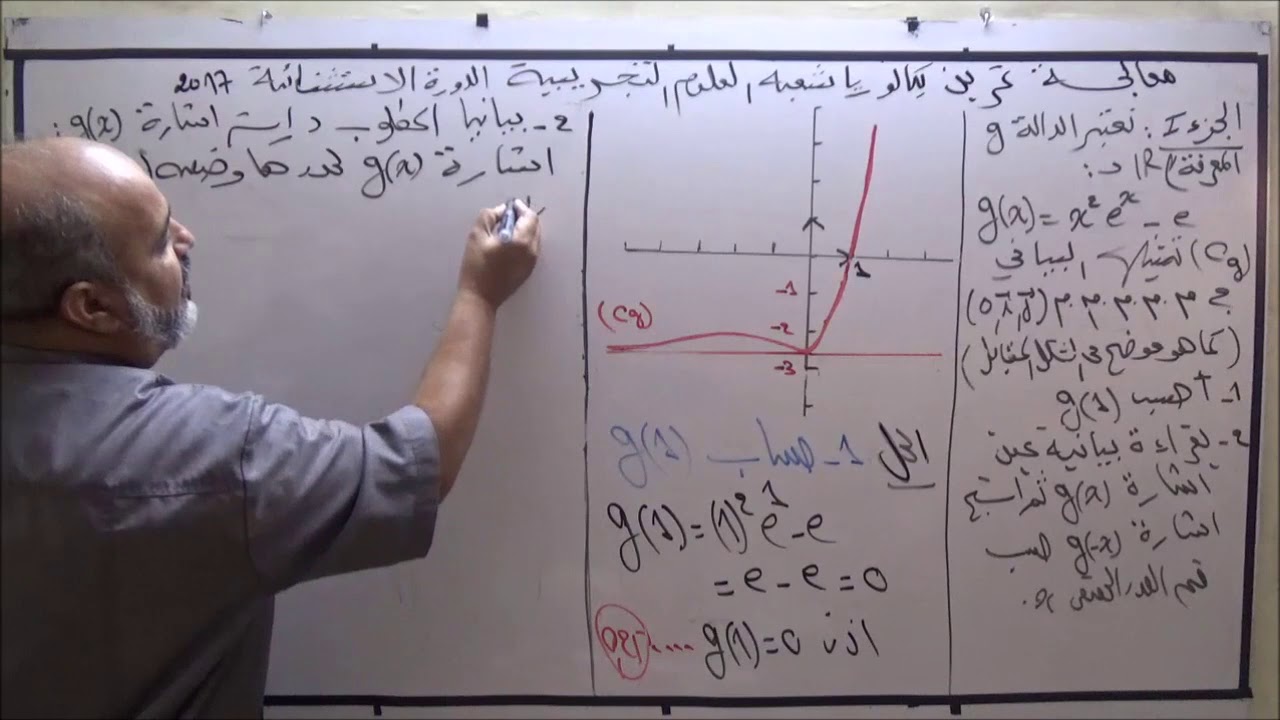 معالجة تمرين بكالوريا شعبة العلوم التجريبية الدورة الاستثنائية 2017
الجزء I: نعتبر الدالة g
المعرفة على R بـ:
g(x) = x² eˣ - e
(Cg) تمثيلها البياني
(o, i, j) م.م.م.م
(كما هو موضح في الشكل المقابل)
1- أحسب g(1)
2- بقراءة بيانية عين
إشارة g(x) ثم استنتج
إشارة g(-x) حسب
قيم العدد الحقيقي x.
1
-1
-2
-3
(Cg)
الحل 1- حساب g(1)
g(1) = (1)² e¹ - e
= e - e = 0
إذن g(1) = 0 ....
2- بيانيا المطلوب دراسة إشارة g(x):
إشارة g(x) نحددها